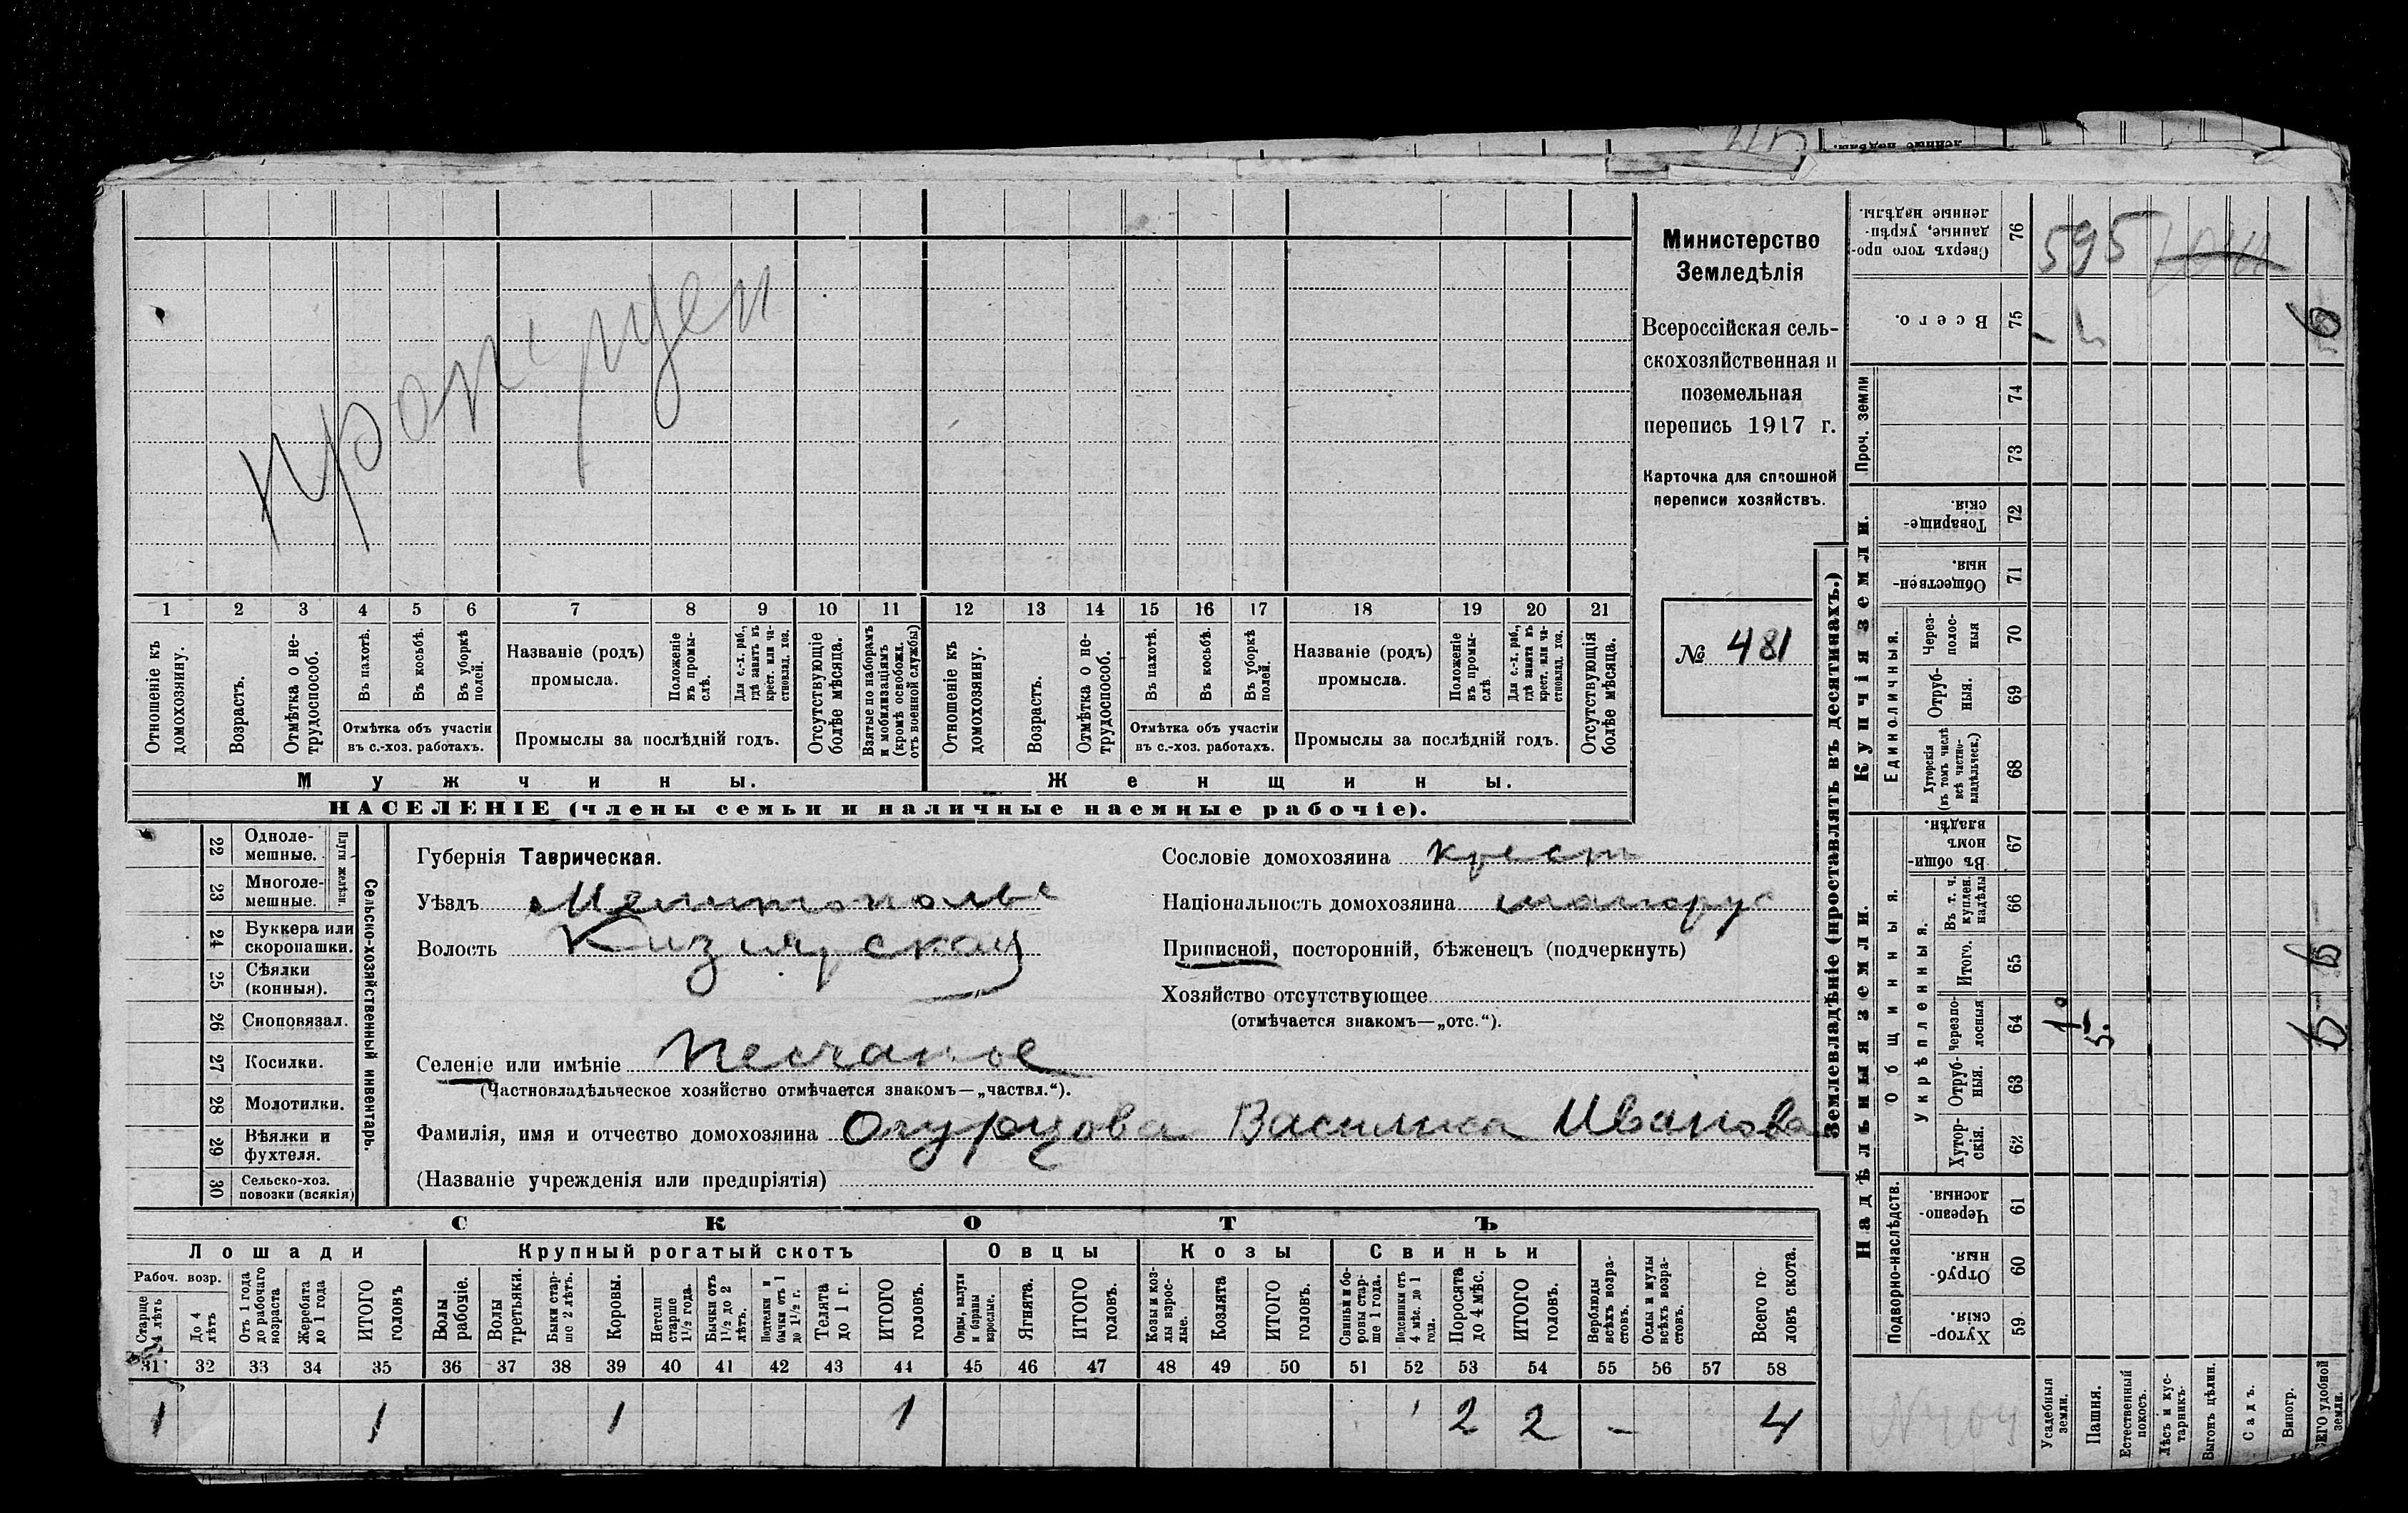 Министерство
Земледѣлія
Всероссійская сель-
скохозяйственная и
поземельная
перепись 1917 г.
Карточка для сплошной
переписи хозяйствъ.
№ 481
1 2 3 4 5 6 7 8 9 10 11 12 13 14 15 16 17 18 19 20 21
Отношеніе къ домохозяину.
Возрастъ.
Отмѣтка о не-трудоспособ.
Въ пахотѣ.
Въ косьбѣ.
Въ уборкѣ полей.
Отмѣтка объ участіи
въ с.-хоз. работахъ.
Названіе (родъ)
промысла.
Положеніе въ промы-слѣ.
Для с.-х. раб., гдѣ занятъ въ крест. или ча-стновлад. хоз.
Промыслы за послѣдній годъ.
Отсутствующіе болѣе мѣсяца.
Взятые по наборамъ и мобилизаціямъ (кромѣ освобожд. отъ военной службы)
Отношеніе къ домохозяину.
Возрастъ.
Отмѣтка о не-трудоспособ.
Въ пахотѣ.
Въ косьбѣ.
Въ уборкѣ полей.
Отмѣтка объ участіи
въ с.-хоз. работахъ.
Названіе (родъ)
промысла.
Положеніе въ промы-слѣ
Для с.-х. раб., гдѣ занята въ крест. или ча-стновлад. хоз.
Промыслы за послѣдній годъ.
Отсутствующія болѣе мѣсяца.
Мужчины.
Женщины.
НАСЕЛЕНІЕ (члены семьи и наличные наемные рабочіе).
22 Одноле-мешные.
23 Многоле-мешные.
Плуги желѣзн.
24 Буккера или скоропашки.
25 Сѣялки (конныя).
26 Сноповязал.
27 Косилки.
28 Молотилки.
29 Вѣялки и фухтеля.
30 Сельско-хоз. повозки (всякія)
Сельско-хозяйственный инвентарь.
Губернія Таврическая.
Уѣздъ Мелитополь
Волость Кизиярская
Селеніе или имѣніе Песчаное
(Частновладѣльческое хозяйство отмѣчается знакомъ—„частвл.“).
Фамилія, имя и отчество домохозяина Огурцова Василиса Иванова
(Названіе учрежденія или предпріятія)
Сословіе домохозяина крест
Національность домохозяина малорус
Приписной, посторонній, бѣженецъ (подчеркнуть)
Хозяйство отсутствующее
(отмѣчается знакомъ—„отс.“).
СКОТЪ
Лошади
Крупный рогатый скотъ
Овцы
Козы
Свиньи
Рабоч. возр.
Старше 4 лѣтъ
До 4 лѣтъ
Отъ 1 года до рабочаго возраста
Жеребята до 1 года
ИТОГО головъ
Волы рабочіе.
Волы третьяки.
Быки стар-ше 2 лѣтъ.
Коровы.
Нетели старше 1½ года.
Бычки отъ 1½ до 2 лѣтъ.
Подтелки и бычки отъ 1 до 1½ г.
Телята до 1 г.
ИТОГО головъ.
Овцы, валухи и бараны взрослые.
Ягнята.
ИТОГО головъ.
Козы и коз-лы взрос-лые.
Козлята
ИТОГО головъ.
Свиньи и бо-ровы стар-ше 1 года.
Подсвинки отъ 4 мѣс. до 1 года.
Поросята до 4 мѣс.
ИТОГО головъ.
Верблюды всѣхъ возра-стовъ.
Ослы и мулы всѣхъ возра-стовъ.
Всего го-ловъ скота.
31 32 33 34 35 36 37 38 39 40 41 42 43 44 45 46 47 48 49 50 51 52 53 54 55 56 57 58
1 1 1 1 2 2 - 4
Землевладѣніе (проставлять въ десятинахъ.)
Надѣльныя земли.
Купчія земли.
Проч. земли
Подворно-наслѣдств.
Общинныя.
Укрѣпленныя.
Единоличныя.
Сверхъ того про-данные, укрѣп-ленные надѣлы. 76
Всего. 75
74
73
Товарище-скія. 72
Обществен-ныя. 71
Через-полос-ныя 70
Отруб-ныя. 69
Хуторскія (въ томъ числѣ всѣ частно-владѣльческ.) 68
Въ общи-номъ владѣн. 67
Въ т. ч. куплен. надѣлы 66
Итого. 65
Черезпо-лосныя 64
Отруб-ныя. 63
Хутор-скія. 62
Черезпо-лосныя. 61
Отруб-ныя. 60
Хутор-скія. 59
Усадебныя земли.
Пашня.
Естественный покосъ.
Лѣсъ и кус-тарникъ.
Выгонъ цѣлин.
Садъ.
Виногр.
595
6
6
1
5.
6